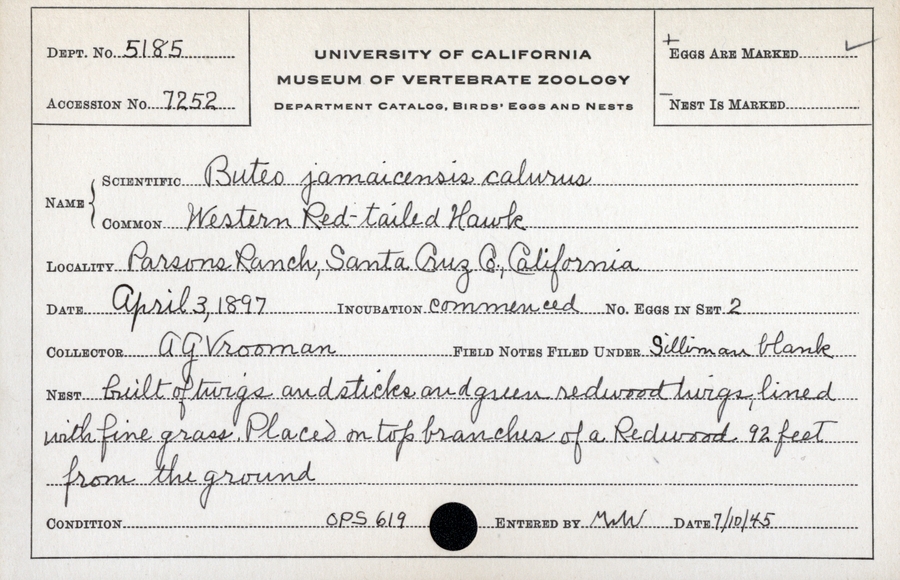 DEPT. NO. 5185
UNIVERSITY OF CALIFORNIA
+ EGGS ARE MARKED ✓
MUSEUM OF VERTEBRATE ZOOLOGY
ACCESSION NO. 7252
DEPARTMENT CATALOG, BIRDS' EGGS AND NESTS
— NEST IS MARKED
NAME { SCIENTIFIC Buteo jamaicensis calurus
COMMON Western Red-tailed Hawk
LOCALITY Parsons Ranch, Santa Cruz Co., California
DATE April 3, 1897 INCUBATION commenced NO. EGGS IN SET 2
COLLECTOR A G Vrooman FIELD NOTES FILED UNDER Silliman blank
NEST built of twigs and sticks and green redwood twigs, lined
with fine grass. Placed on top branches of a Redwood 92 feet
from the ground
CONDITION OPS 619 ENTERED BY DATE 7/10/45